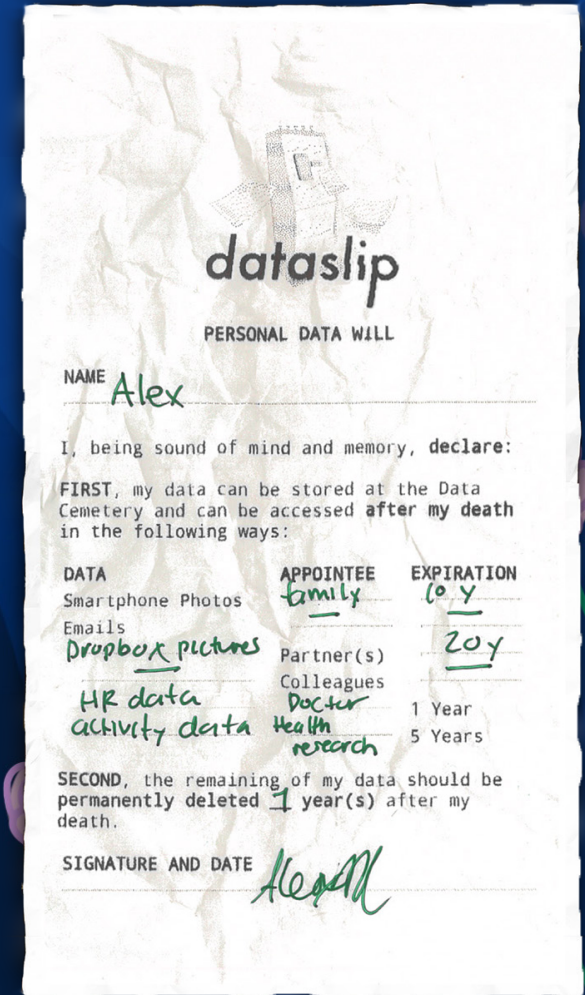 dataslip
PERSONAL DATA WILL
NAME Alex
I, being sound of mind and memory, declare:
FIRST, my data can be stored at the Data
Cemetery and can be accessed after my death
in the following ways:
DATA APPOINTEE EXPIRATION
Smartphone Photos family 10 y
Emails
Dropbox pictures Partner(s) 20 y
Colleagues
HR data Doctor 1 Year
activity data Health 5 Years
research
SECOND, the remaining of my data should be
permanently deleted 1 year(s) after my
death.
SIGNATURE AND DATE